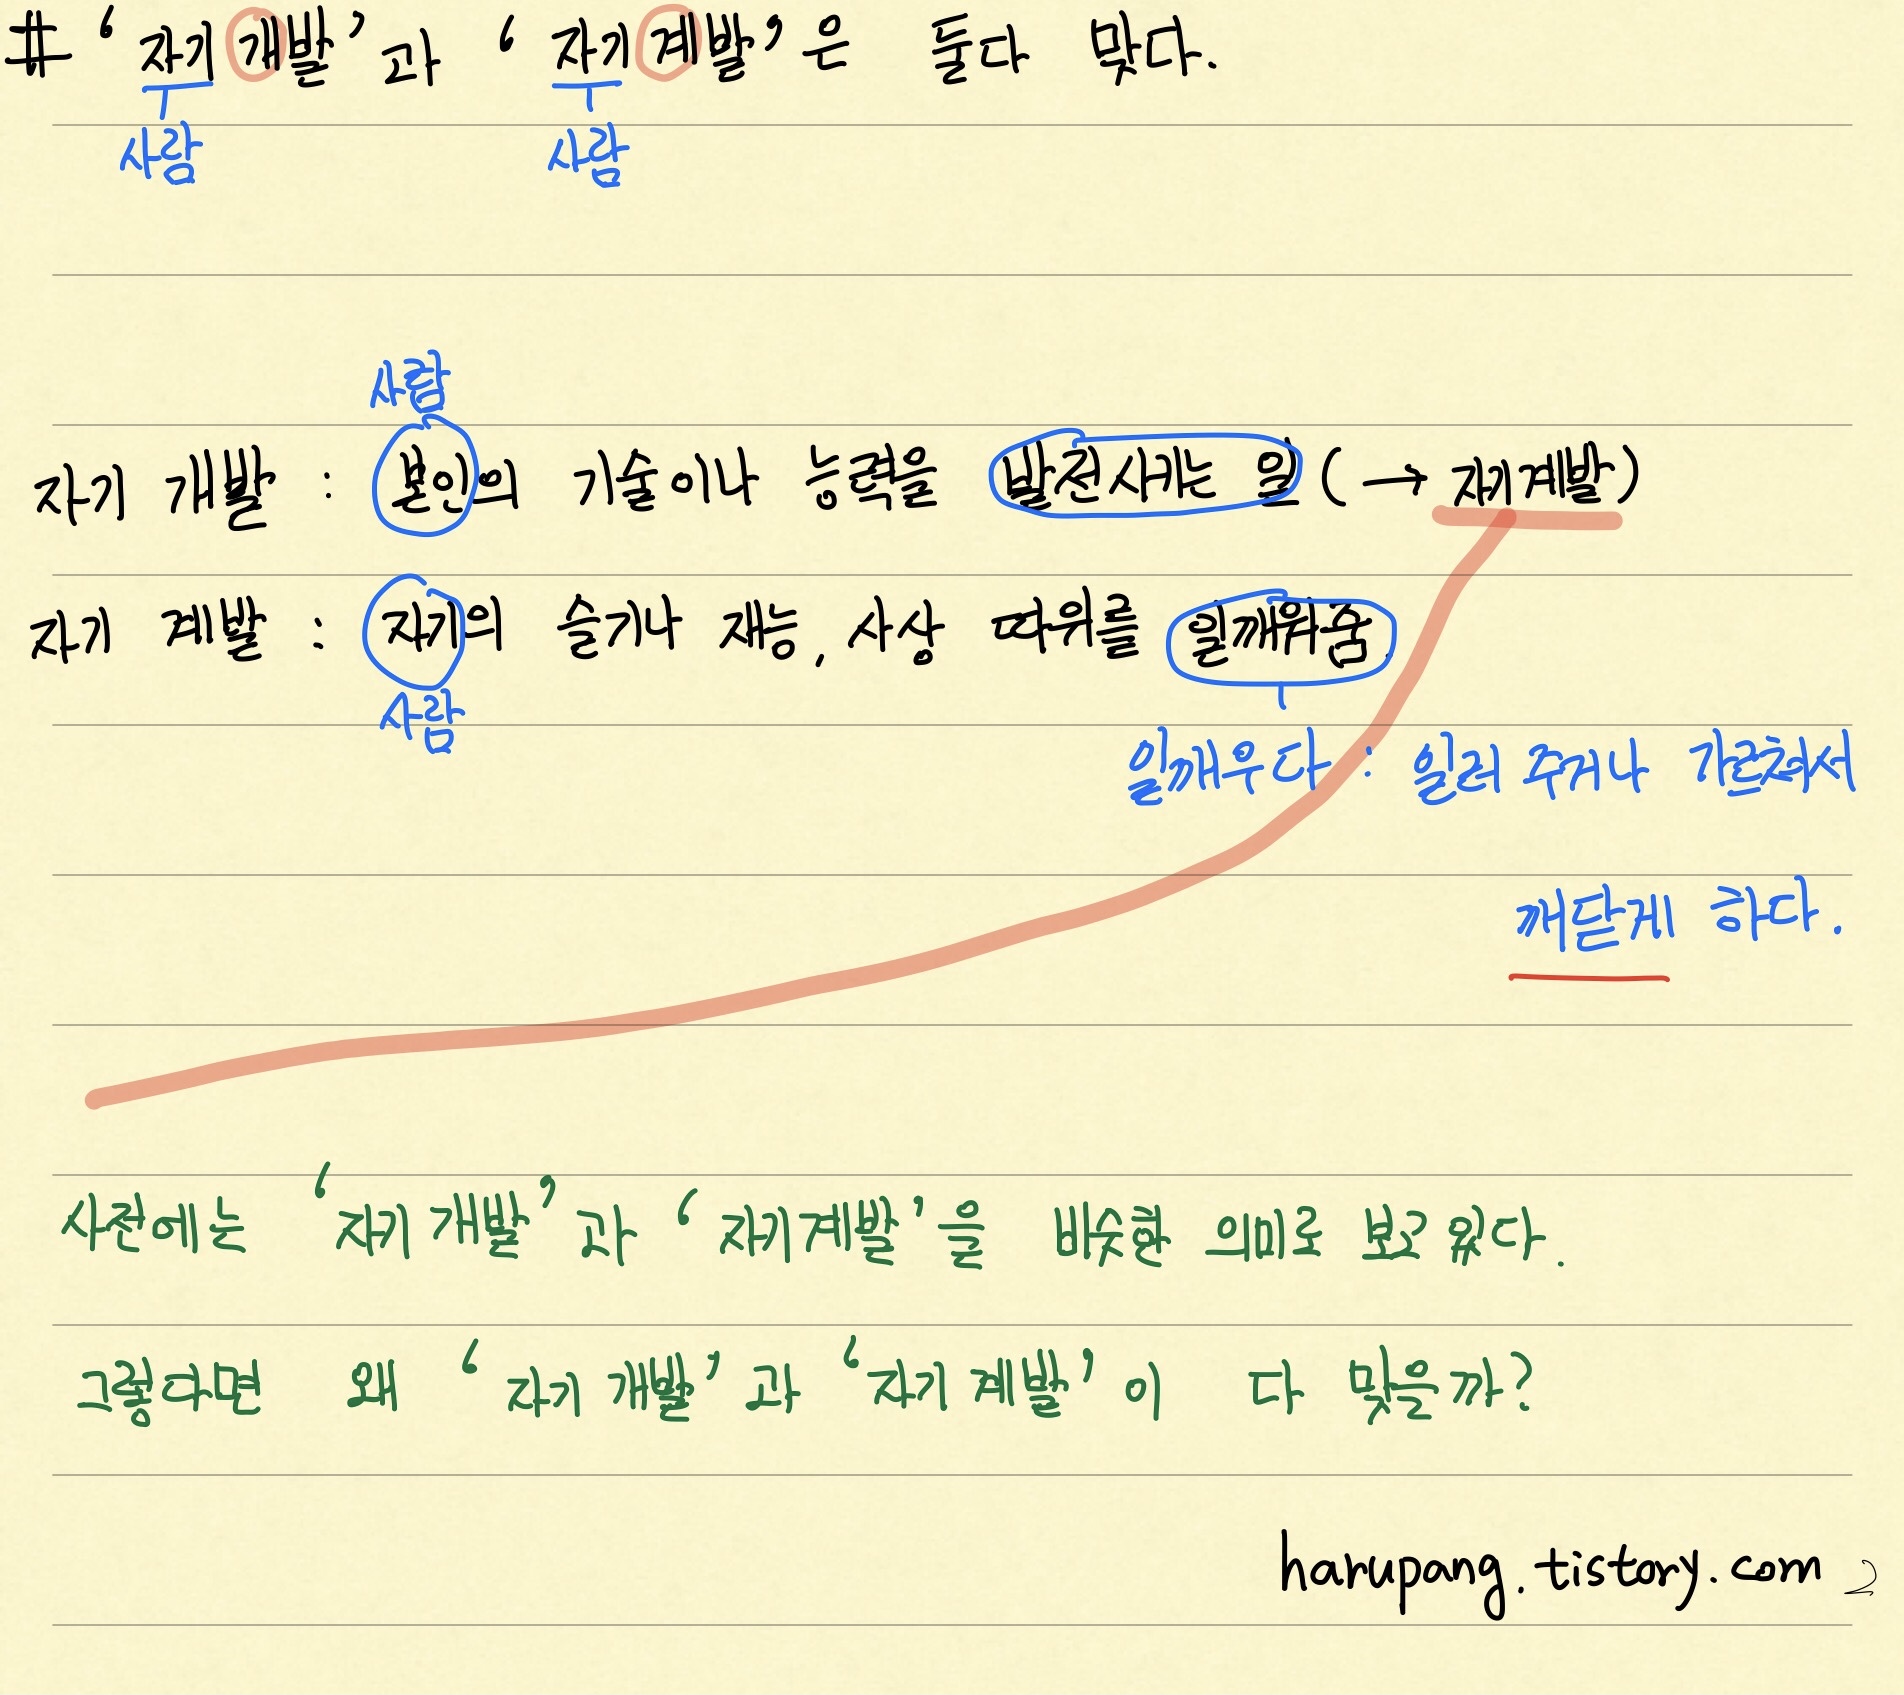 # ‘자기개발’과 ‘자기계발’은 둘다 맞다.
사람 사람
사람
자기 개발 : 본인의 기술이나 능력을 발전시키는 일 (→ 자기계발)
자기 계발 : 자기의 슬기나 재능, 사상 따위를 일깨워줌.
사람
일깨우다 : 일러 주거나 가르쳐서
깨닫게 하다.
사전에는 ‘자기 개발’과 ‘자기계발’을 비슷한 의미로 보고 있다.
그렇다면 왜 ‘자기 개발’과 ‘자기 계발’이 다 맞을까?
harupang.tistory.com 2